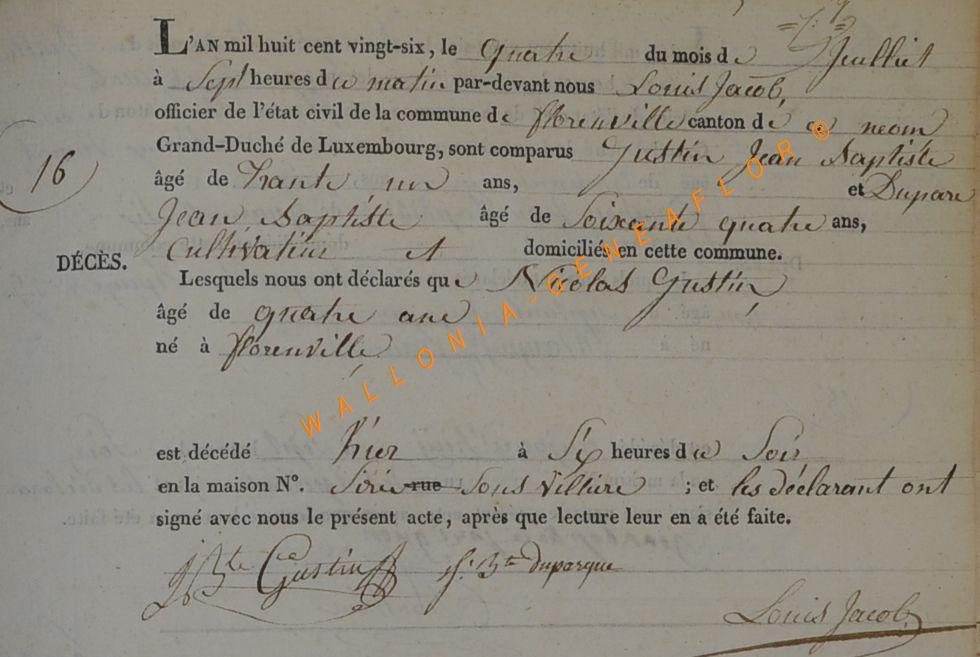 L'AN mil huit cent vingt-six, le quatre du mois de Juilliet
à Sept heures du matin par-devant nous Louis Jacob,
officier de l'état civil de la commune de florenville canton de ce neom
Grand-Duché de Luxembourg, sont comparus Gustin Jean Baptiste
16
âgé de trante un ans, et Dupare
Jean Baptiste âgé de Soixante quatre ans,
Cultivatieur et domiciliés en cette commune.
DÉCÈS.
Lesquels nous ont déclarés que Nicolas Gustin
âgé de quatre ans
né à florenville
est décédé hier à Six heures du Soir
en la maison Nº. rue Sous ; et les déclarant ont
signé avec nous le présent acte, après que lecture leur en a été faite.
JBte Gustin J: Bte duparque
Louis Jacob
WALLONIA-GENEAFLOR©